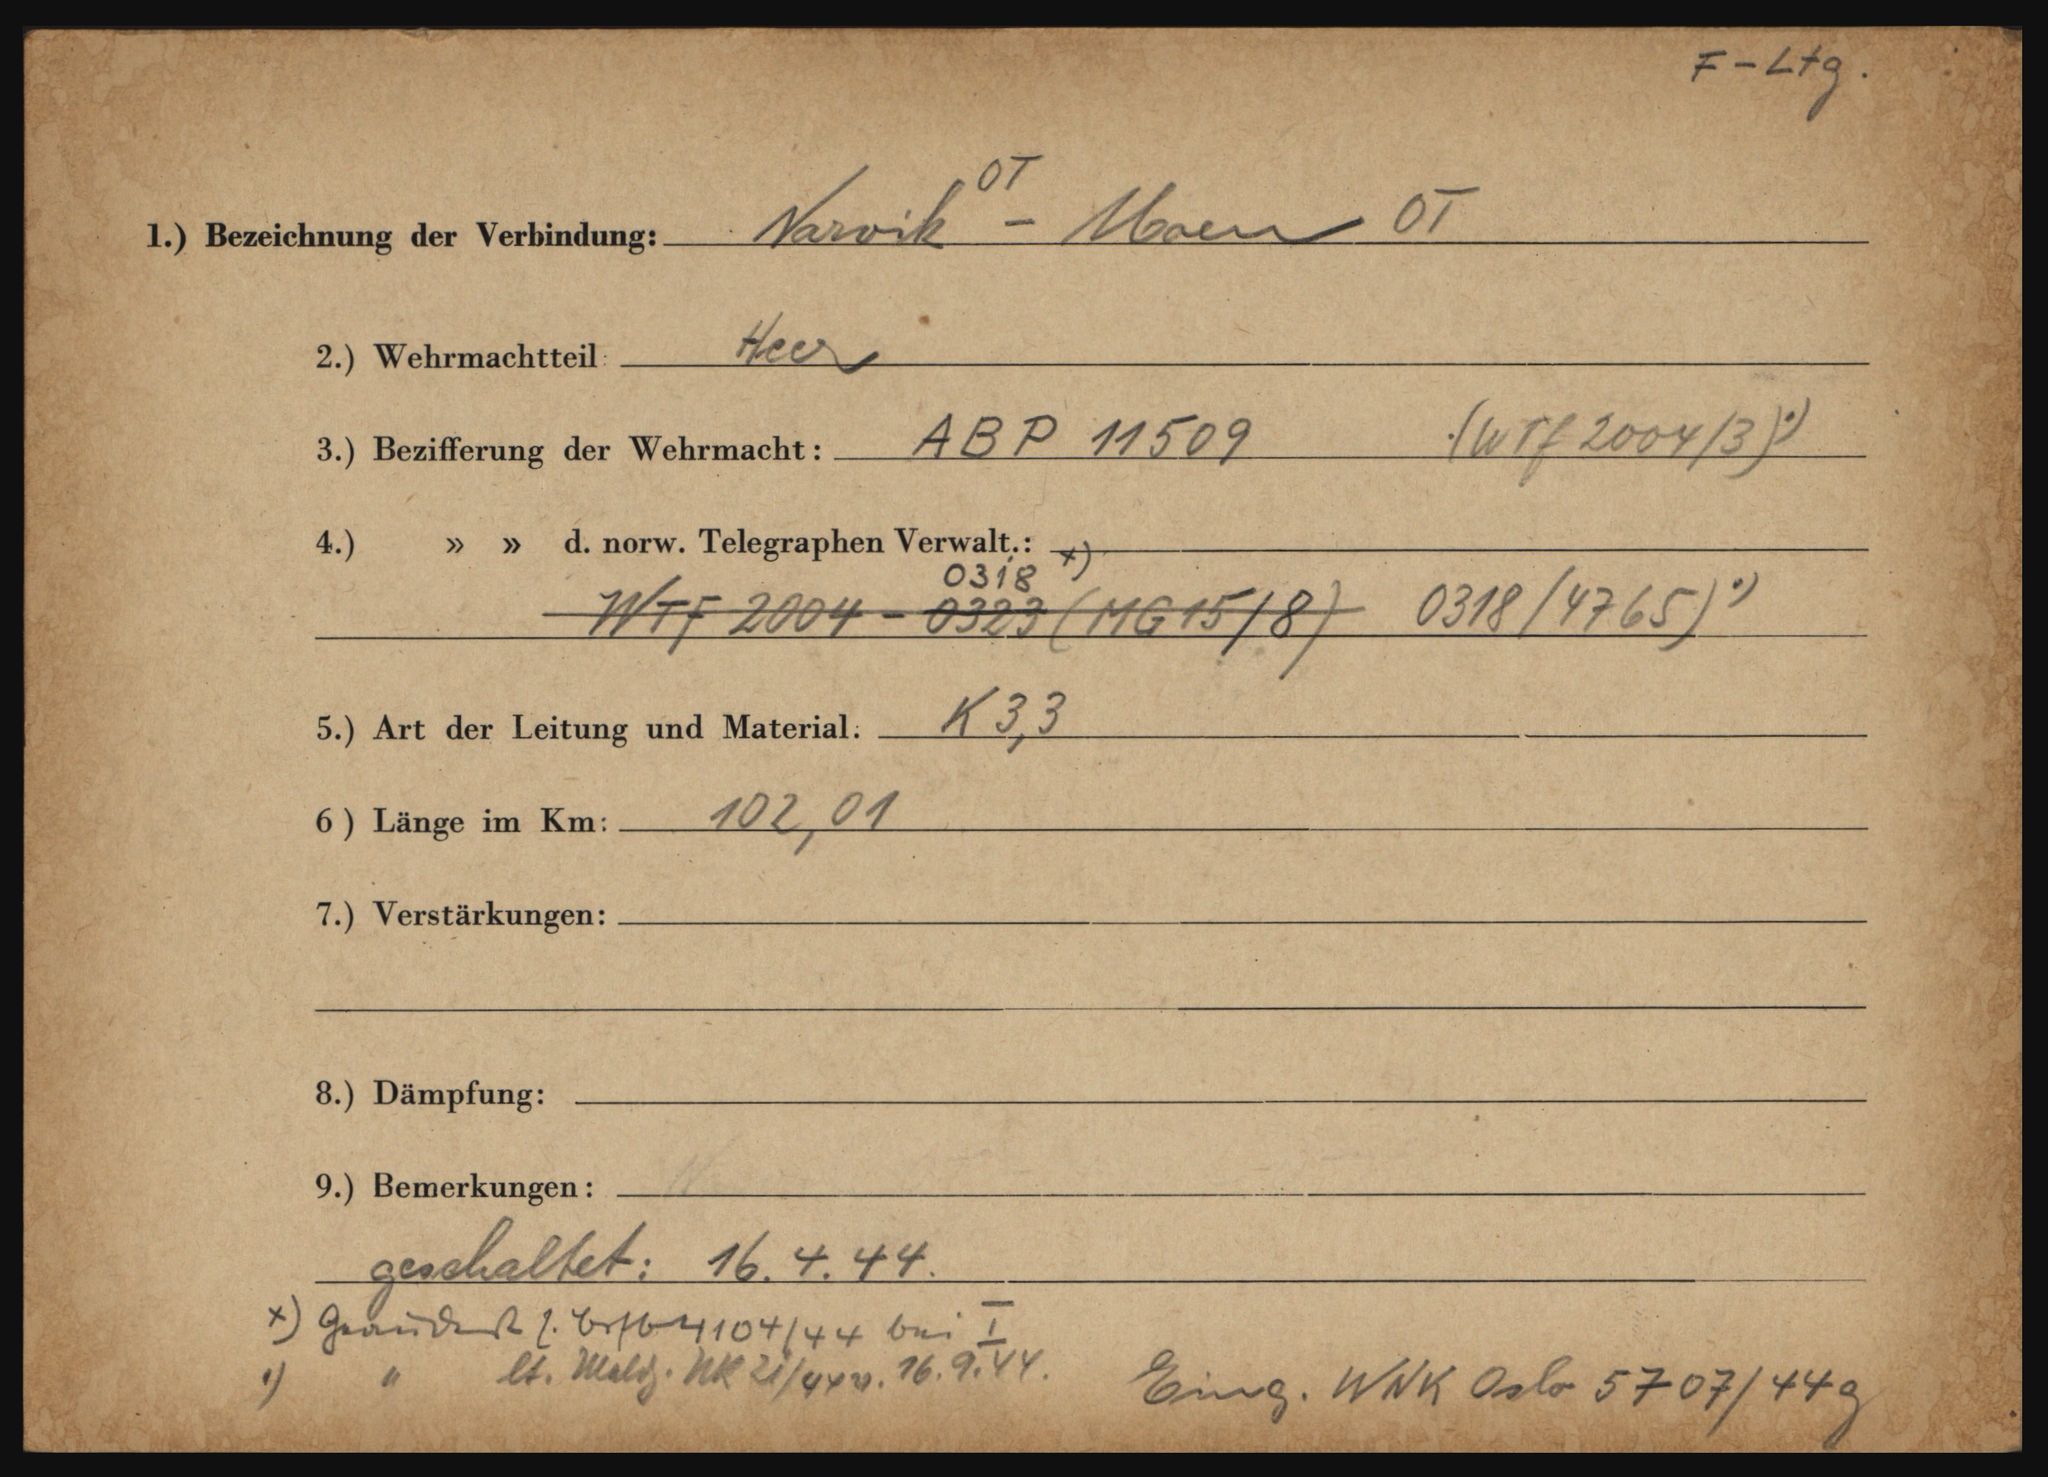 F – Ltg.
1.) Bezeichnung der Verbindung: Narvik OT – Moen OT
2.) Wehrmachtteil: Heer
3.) Bezifferung der Wehrmacht: ABP 11509 (WTf 2004/3) ¹)
4.) » » d. norw. Telegraphen Verwalt.:
0318 x)
WTf 2004 – 0323 (MG 15/8) 0318/4765) ¹)
5.) Art der Leitung und Material: K 3,3
6) Länge im Km: 102,01
7.) Verstärkungen:
8.) Dämpfung:
9.) Bemerkungen:
geschaltet: 16.4.44.
x) Geändert 4104/44 bei I
¹) " lt. Meldg. NK 21/44 v. 16.9.44.
Eing. WNK Oslo 5707/44g